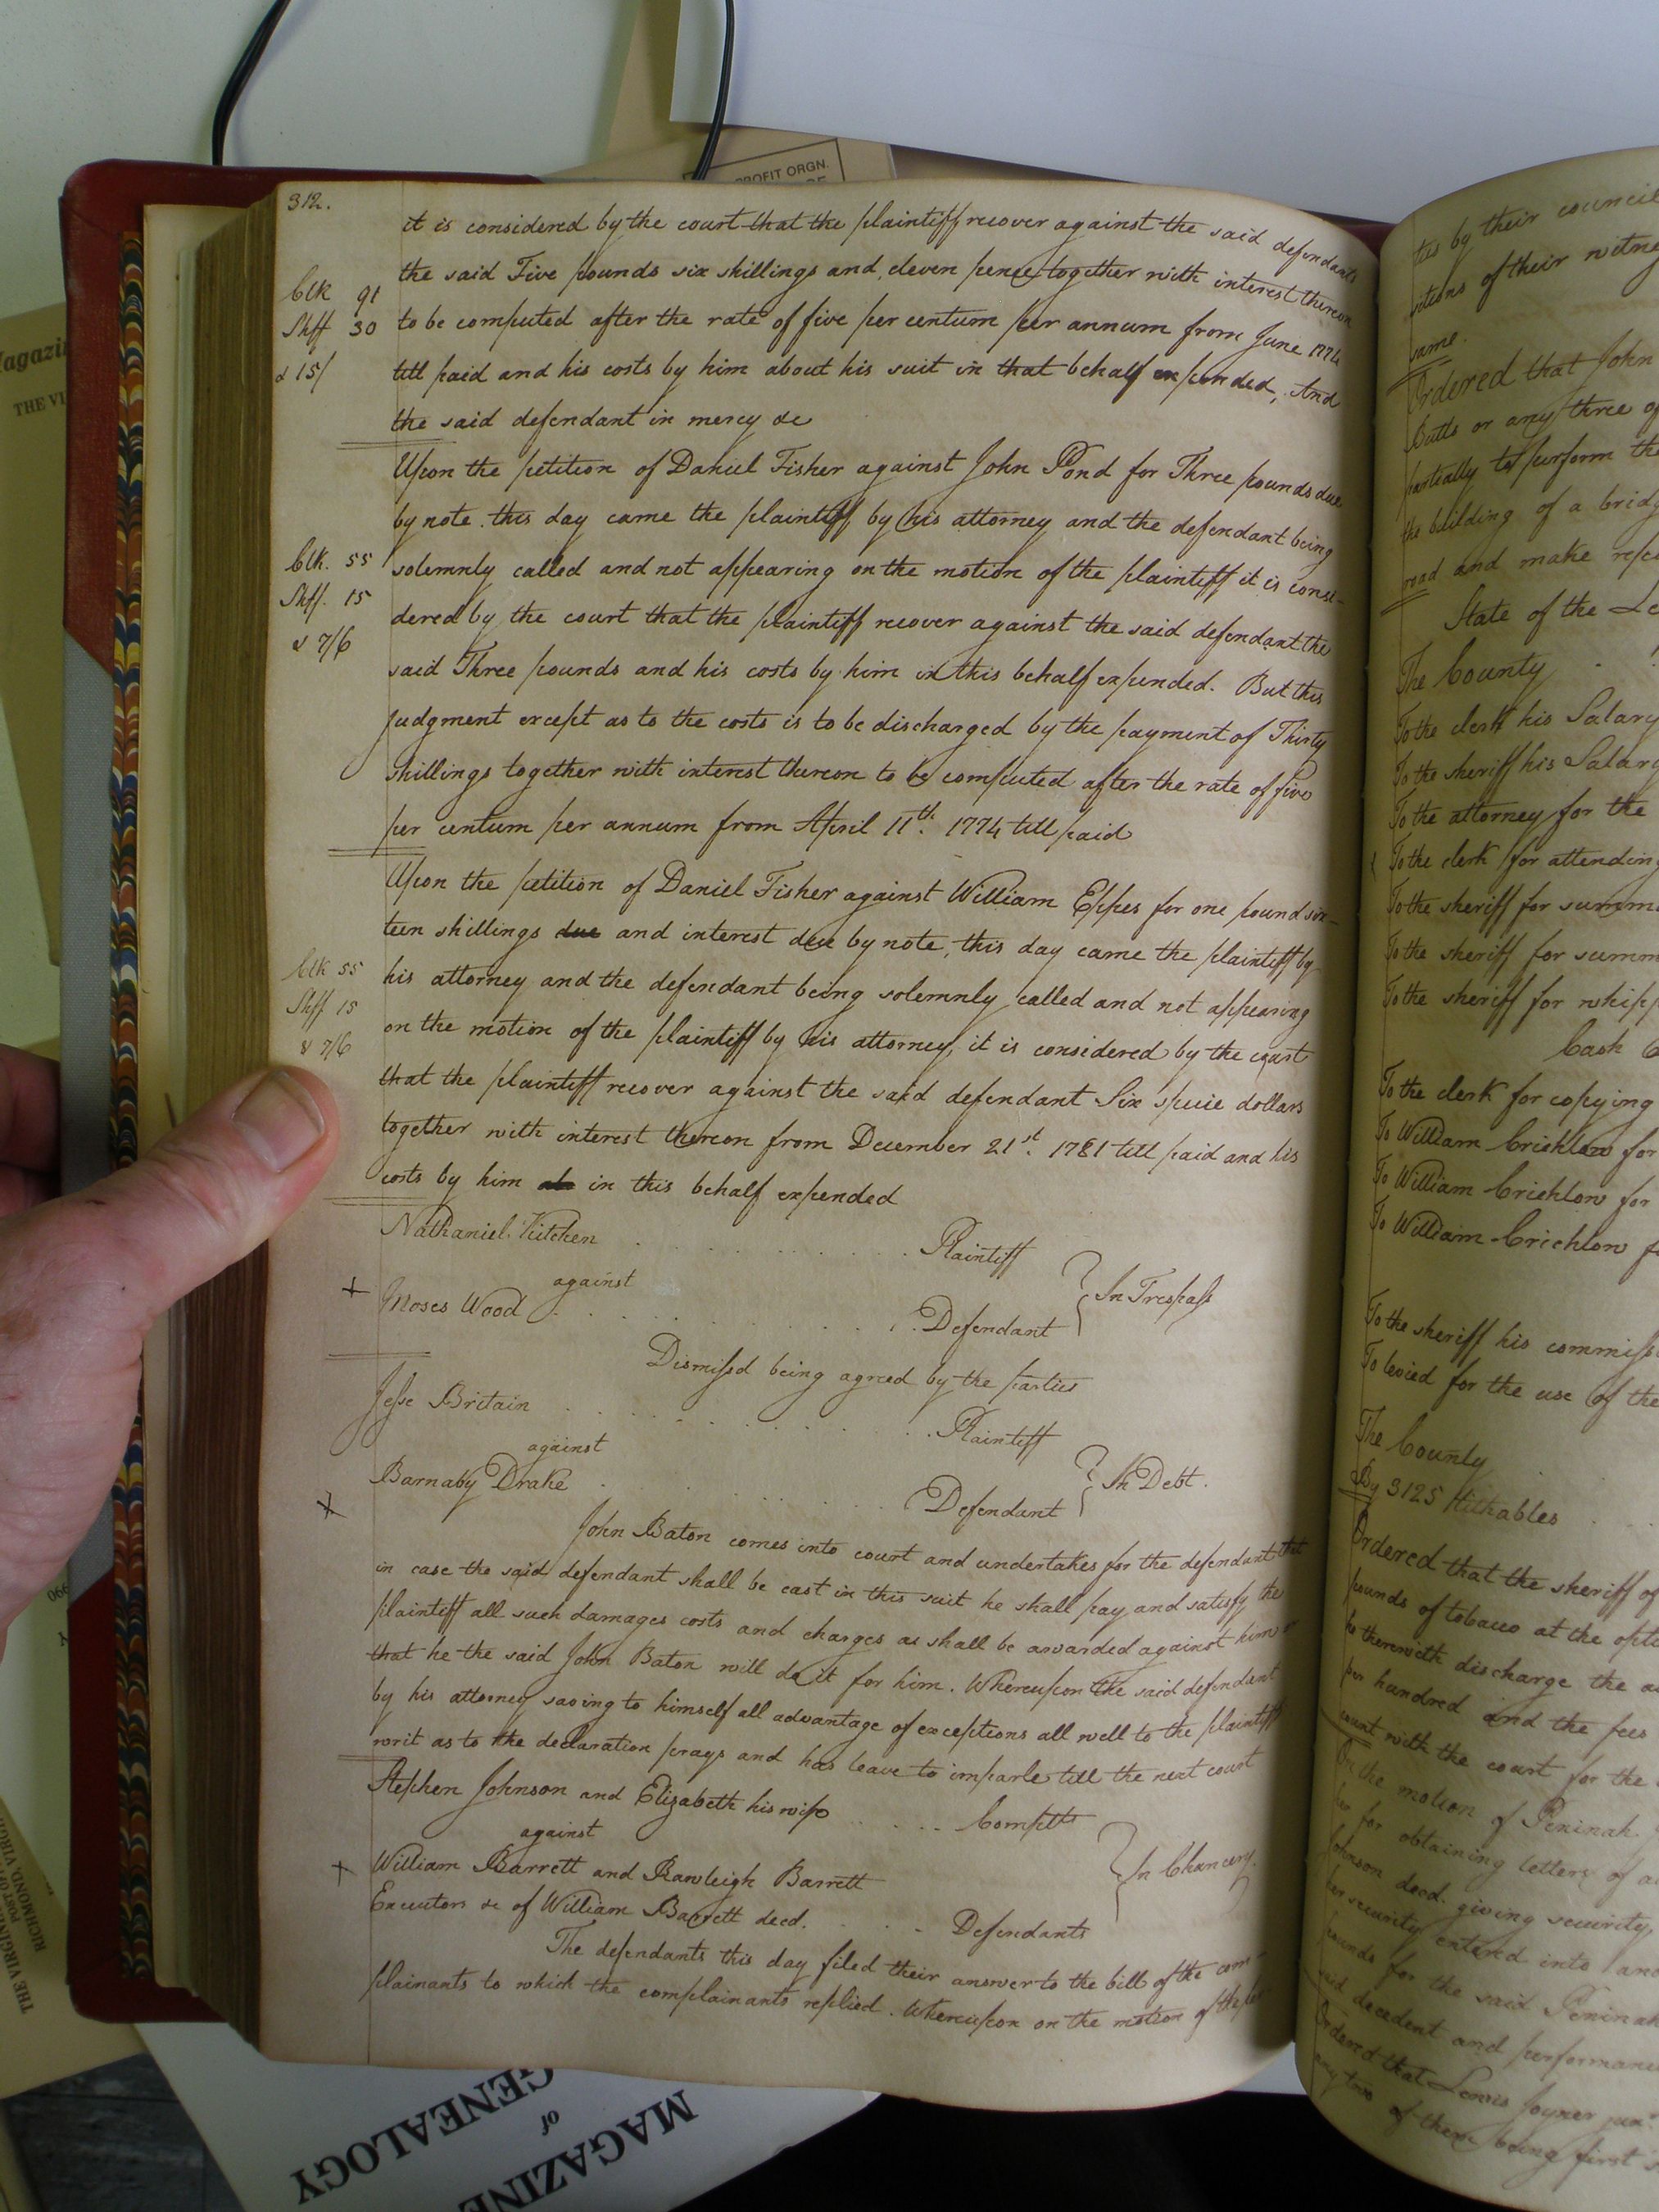 312.
it is considered by the court that the plaintiff recover against the said defendants
the said Five pounds six shillings and eleven pence together with interest thereon
Clk 91
Shff 30
& 15/
to be computed after the rate of five per centum per annum from June 1774
till paid and his costs by him about his suit in that behalf expended, And
the said defendant in mercy &c
Upon the petition of Daniel Fisher against John Pond for Three pounds due
by note. this day came the plaintiff by his attorney and the defendant being
Clk. 55
Shff. 15
& 7/6
solemnly called and not appearing on the motion of the plaintiff it is consi-
dered by the court that the plaintiff recover against the said defendant the
said Three pounds and his costs by him in this behalf expended. But this
judgment except as to the costs is to be discharged by the payment of Thirty
shillings together with interest thereon to be computed after the rate of five
per centum per annum from April 11th. 1774 till paid
Upon the petition of Daniel Fisher against William Eppes for one pound six-
teen shillings due and interest due by note, this day came the plaintiff by
Clk 55
Shff 15
& 7/6
his attorney and the defendant being solemnly called and not appearing
on the motion of the plaintiff by his attorney, it is considered by the court
that the plaintiff recover against the said defendant Six specie dollars
together with interest thereon from December 21st. 1781 till paid and his
costs by him in this behalf expended
Nathaniel Kitchen . . . . Plaintiff
against
In Trespass
Moses Wood . . . . Defendant
Dismissd being agreed by the parties
Jesse Britain . . . . Plaintiff
against
In Debt.
Barnaby Drake . . . . Defendant
John Baton comes into court and undertakes for the defendant that
in case the said defendant shall be cast in this suit he shall pay and satisfy the
plaintiff all such damages costs and charges as shall be awarded against him or
that he the said John Baton will do it for him. Whereupon the said defendant
by his attorney saving to himself all advantage of exceptions all well to the plaintiff
writ as to the declaration prays and has leave to imparle till the next court
Stephen Johnson and Elizabeth his wife . . . . Complts
against
In Chancery.
William Barrett and Rawleigh Barrett
Executors &c of William Barrett decd. . . . Defendants
The defendants this day filed their answer to the bill of the com-
plainants to which the complainants replied. Whereupon on the motion of the
ties by their
of their
same.
Ordered that John
Butts or any three of
partially to perform the
the building of a
road and make
State of the
The County
To the clerk his Salary
To the sheriff his Salary
To the attorney for the
To the clerk for attending
To the sheriff for
To the sheriff for
To the sheriff for
Cash
To the clerk for copying
To William Crichlow for
To William Crichlow for
To William Crichlow
To the sheriff his
To levied for the use of the
The County
By 3125 tithables
Ordered that the sheriff of
pounds of tobacco at the
he therewith discharge the
per hundred and the fees
count with the court for the
On the motion of Peninah
her for obtaining letters of
Johnson decd. giving security,
her security entered into and
pounds for the said Peninah
said decedent and
Ordered that Lewis Joyner junr.
any two of them being first
PROFIT ORGN.
THE VI
RICHMOND, VIRG
THE VIRGIN
MAGAZINE
of
GENEALOGY